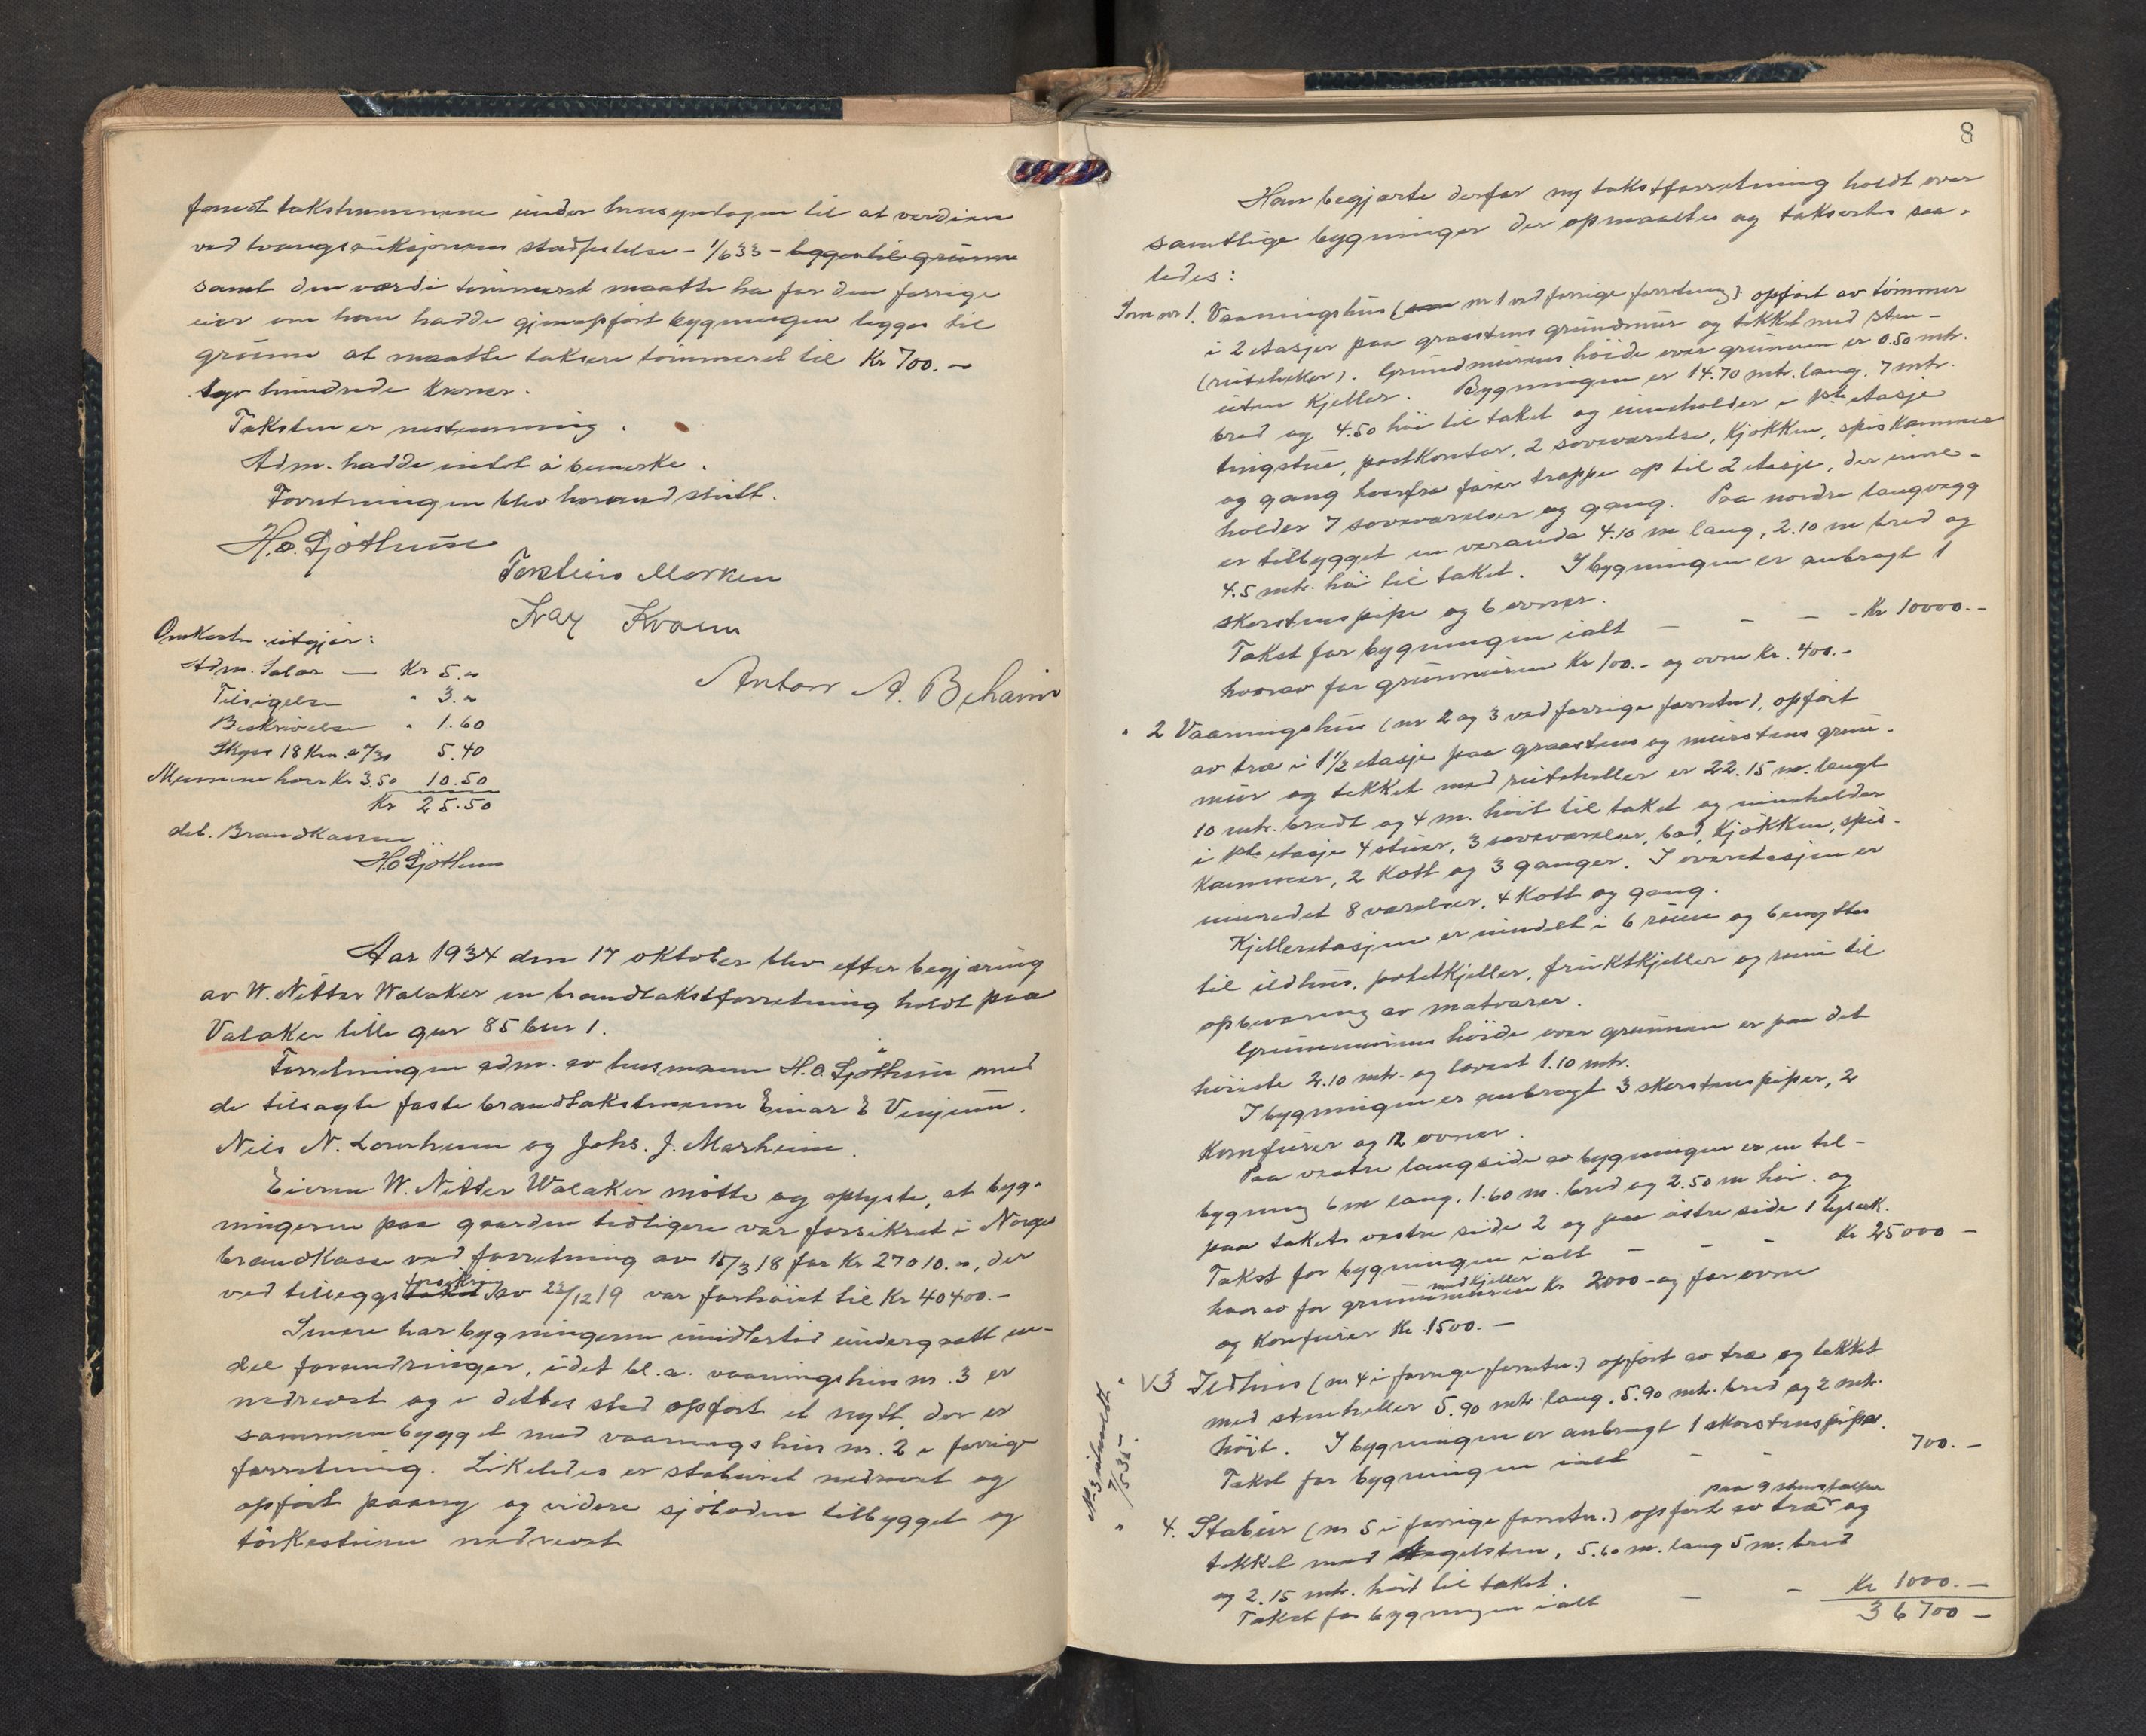 fandt takstmennene under hensyntagen til at verdien
ved tvangsauksjonens stadfestelse - 1/6 33 - lægges til grunn
samt den værdi tømmeret maatte ha for den forrige
eier om han hadde gjenopført bygningen lægges til
grunn at maatte taksere tømmeret til Kr 700.-
syv hundrede kroner.
Taksten er enstemmig.
Adm. hadde intet å bemerke.
Forretningen blev hermed slutt.
H.O. Sjøthun
Torstein Morken
Ivar Kvam
Anton A. Beheim
Omkostn. utgjør:
Adm. Salær — Kr 5.-
Tilsigelse " 3.-
Beskrivelse " 1.60
Skyss 18 Km. a /30 5.40
Mennene hver Kr 3.50 10.50
Kr 25.50
deb. Brandkassen
H.O. Sjøthun
Aar 1934 den 17 oktober blev efter begjæring
av W. Nitter Walaker en brandtakstforretning holdt paa
Valaker lille gnr 85 bnr 1.
Forretningen adm. av lensmann H.O. Sjøthun med
de tilsagte faste brandtakstmenn Einar E Venjum.
Nils N. Lomheim og Johs. J. Marheim.
Eieren W. Nitter Walaker møtte og oplyste, at byg-
ningerne paa gaarden tidligere var forsikret i Norges
brandkasse ved forretning av 15/3 18 for Kr 27010.-, der
ved tilleggs forsikring av 23/12 19 var forhøiet til Kr 40400.-
Senere har bygningerne imidlertid undergaatt en-
del forandringer, idet bl.a. vaaningshus nr. 3 er
nedrevet og i dettes sted opført et nytt, der er
sammenbygget med vaaningshus nr. 2 i forrige
forretning. Likeledes er staburet nedrevet og
opført paany og videre sjøboden tilbygget og
tørkestuen nedrevet
8
Han begjærte derfor ny takstforretning holdt over
samtlige bygninger der opmaaltes og taksertes saa-
ledes:
Som nr 1. Vaaningshus (nr 1 ved forrige forretning) opført av tømmer
i 2 etasjer paa graastens grundmur og tekket med sten-
(ruteheller). Grundmurens høide over grunnen er 0.50 mtr.
uten kjeller. Bygningen er 14.70 mtr. lang, 7 mtr.
bred og 4.50 høi til taket og inneholder i 1ste etasje
tingstue, postkontor, 2 soveværelse, kjøkken, spiskammer
og gang hvorfra fører trappe op til 2 etasje, der inne-
holder 7 soveværelser og gang. Paa nordre langvegg
er tilbygget en veranda 4.10 m lang, 2.10 m bred og
4.5 mtr. høi til taket. I bygningen er anbragt 1
skorstenspipe og 6 ovner.
Takst for bygningen ialt — — — Kr 10000.-
hvorav for grunnmuren Kr 100.- og ovne Kr. 400.-
" 2 Vaaningshus (nr 2 og 3 ved forrige forretn), opført
av træ i 1½ etasje paa graastens og murstens grun-
mur og tekket med ruteheller er 22.15 m. langt
10 mtr. bredt og 4 m. høit til taket og inneholder
i 1ste etasje 4 stuer, 3 soveværelser, bad, kjøkken, spis-
kammer, 2 kott og 3 ganger. I overetasjen er
innredet 8 værelser, 4 kott og gang.
Kjelleretasjen er inndelt i 6 rum og benyttes
til ildhus, potetkjeller, fruktkjeller og rum til
opbevaring av matvarer.
Grunnmurens høide over grunnen er paa det
høieste 2.10 mtr. og lavest 1.10 mtr.
I bygningen er anbragt 3 skorstenspiper, 2
komfurer og 12 ovner.
Paa vestre langside av bygningen er en til-
bygning 6 m lang, 1.60 m. bred og 2.50 m høi. og
paa takets vestre side 2 og paa østre side 1 lysark.
Takst for bygningen ialt — — — Kr 25000 -
hvorav for grunnmuren med kjeller Kr 2000 - og for ovne
og komfurer Kr. 1500.-
V3 Ildhus (nr 4 i forrige forretn.) opført av træ og tekket
med steinheller 5.90 mtr lang, 5.90 mtr. bred og 2 mtr.
høit. I bygningen er anbragt 1 skorstenspipe.
Takst for bygningen ialt — — 700.-
Nr 3 utmeldt
7/5 35 -
" 4. Stabur (nr 5 i forrige forretn.) opført av træ paa 9 stenstolper og
tekket med tegelsten, 5.60 m. lang 5 m. bred
og 2.15 mtr. høit til taket.
Takst for bygningen ialt — — Kr 1000.-
36700 -